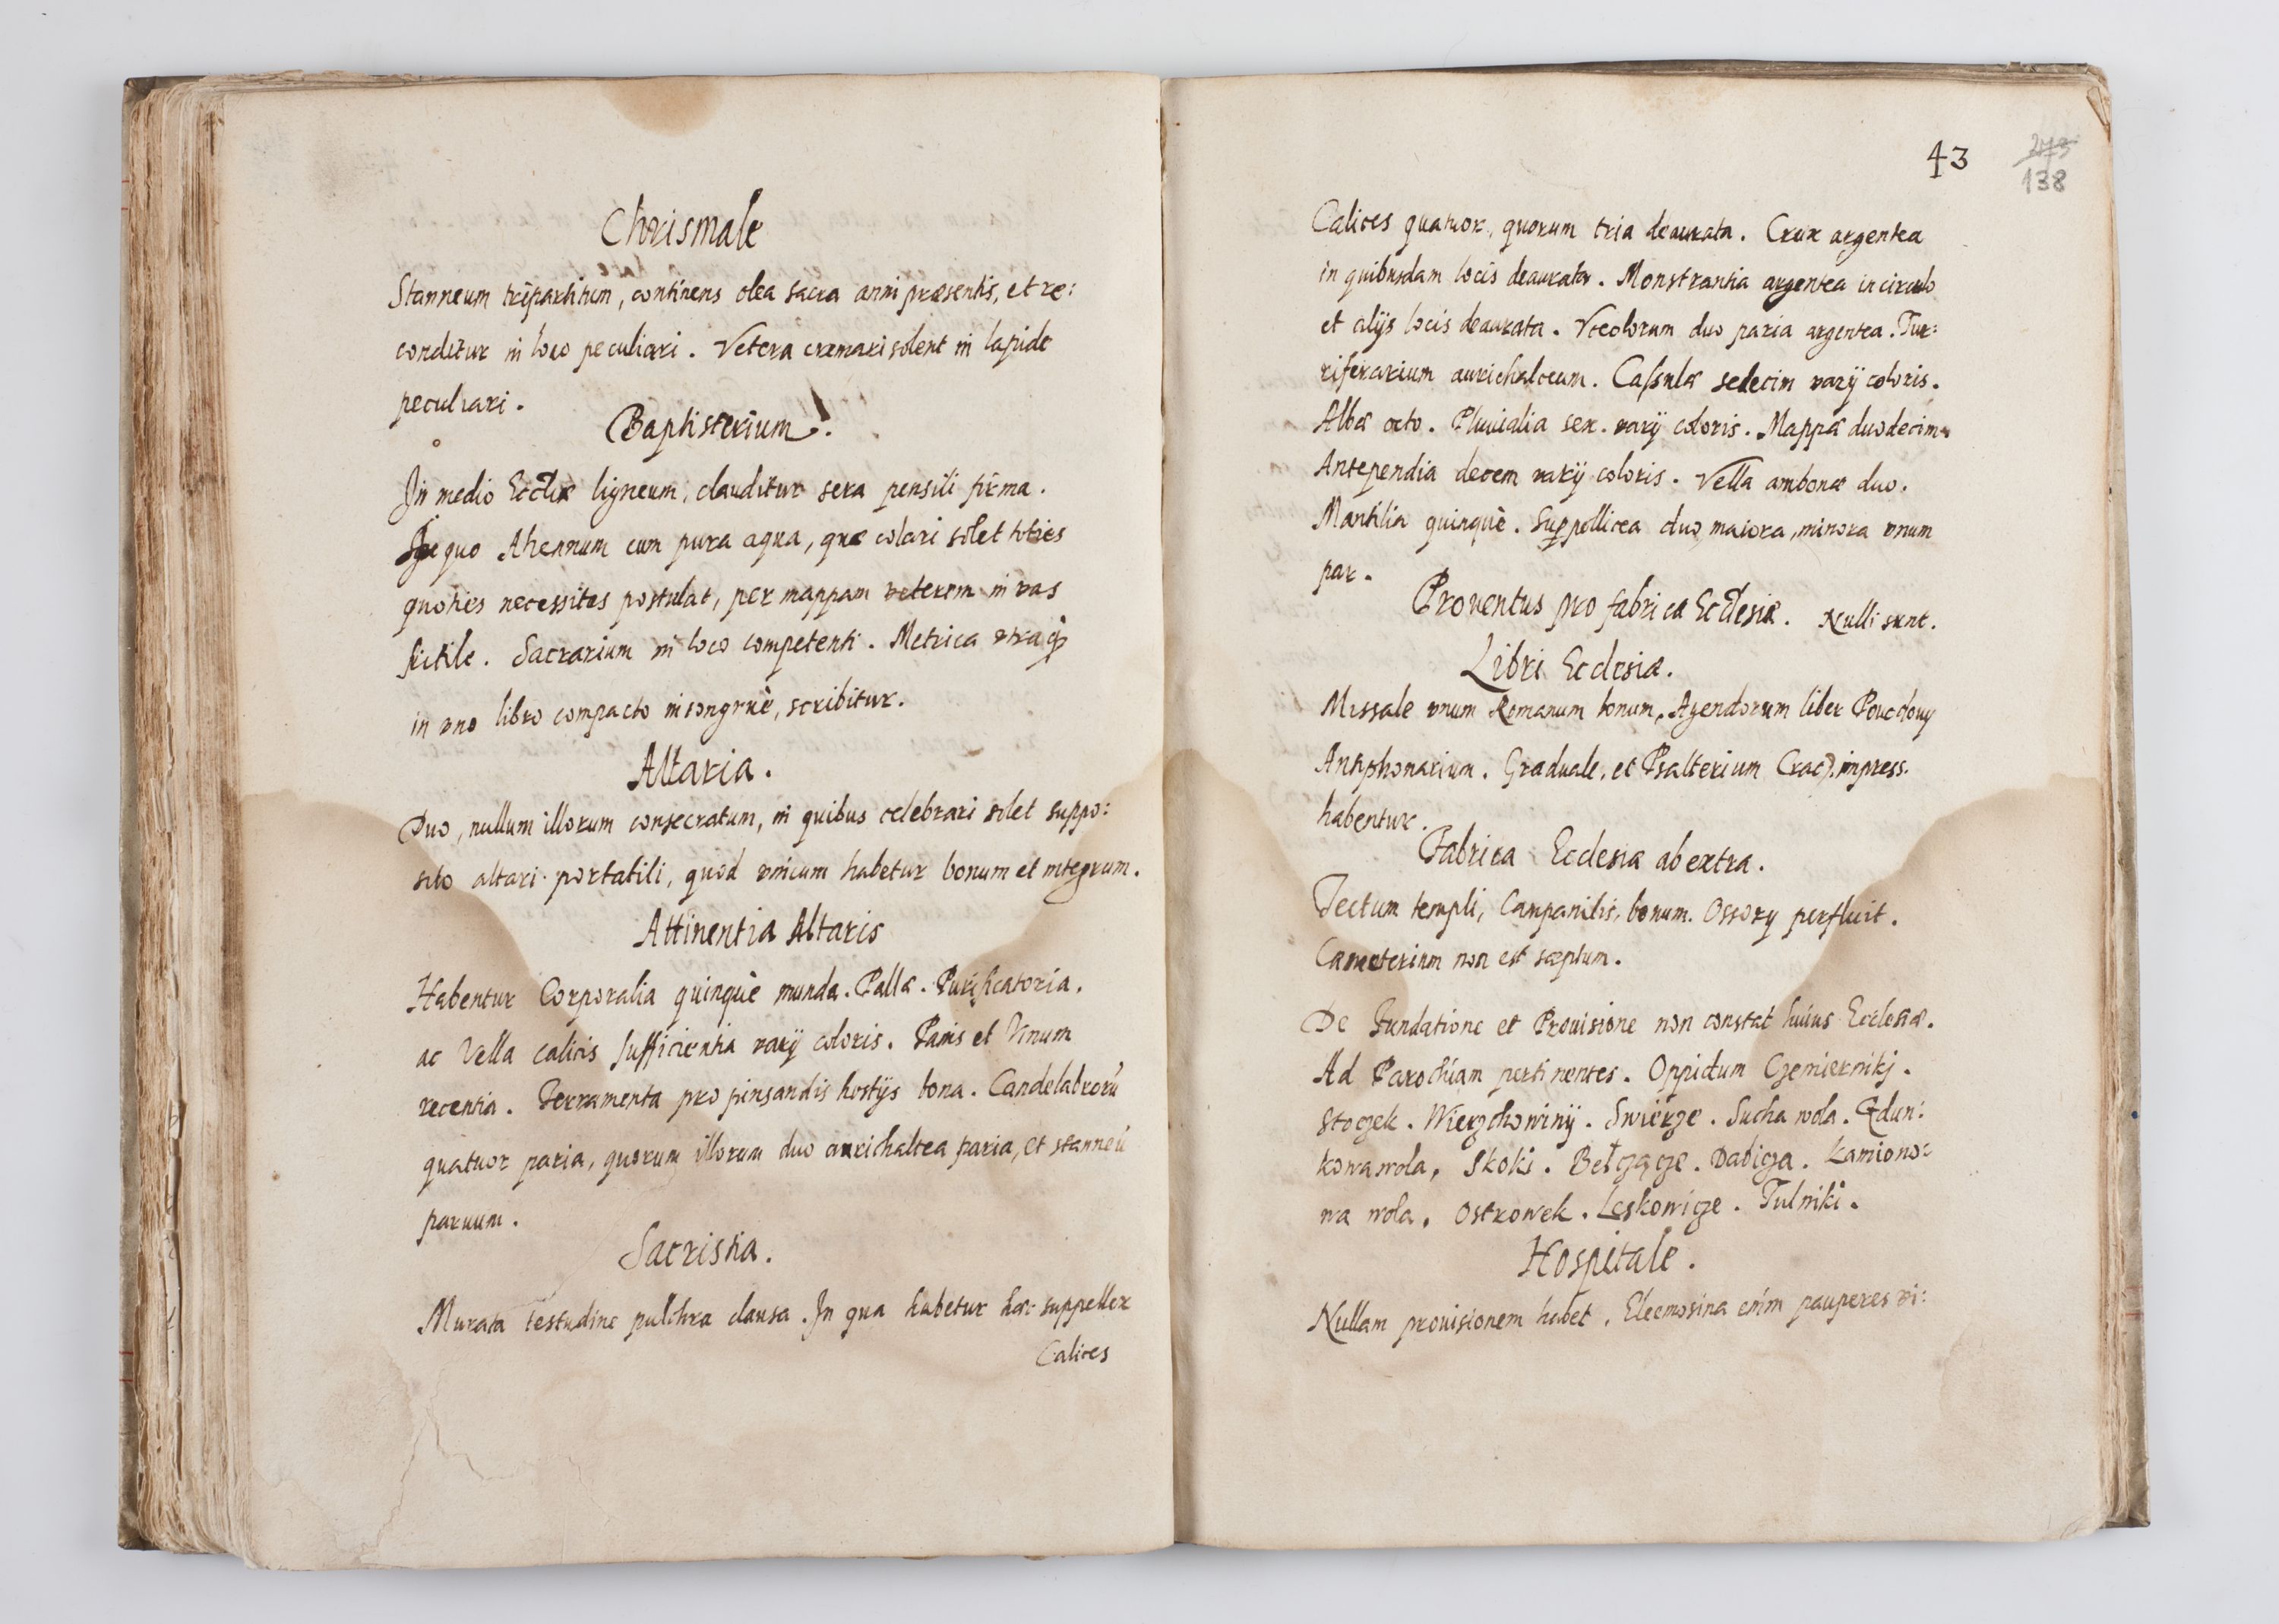 Chrismale
Stanneum tripartitum, continens olea sacra anni præsentis, et re:
conditur in loco peculiari. Vetera cremari solent in lapide
peculiari.
Baptisterium.
In medio Eccliæ ligneum, clauditur sera pensili firma.
quo Ahennum cum pura aqua, quæ colari solet toties
quoties necessitas postulat, per mappam veterem in vas
fictile. Sacrarium in loco competenti. Metrica vtraq
in vno libro compacto incongruè, scribitur.
Altaria.
Duo, nullum illorum consecratum, in quibus celebrari solet suppo:
sito altari portatili, quod vnicum habetur bonum et integrum.
Attinentia Altaris
Habentur Corporalia quinquè munda. Pallæ. Purificatoria.
ac Vella calicis sufficientia varij coloris. Panis et Vinum
recentia. Ferramenta pro pinsandis hostijs bona. Candelabrorū
quatuor paria, quorum illorum duo aurichaltea paria, et stanneū
paruum.
Sacristia.
Murata testudine pulchra clausa. In qua habetur hæc suppellex
Calices
43
138
Calices quatuor, quorum tria deaurata. Crux argentea
in quibusdam locis deaurata. Monstrantia argentea in circulo
et alijs locis deaurata. Vrceolorum duo paria argentea. Tur:
riferarium aurichalceum. Cassulæ sedecim varij coloris.
Albæ octo. Pluuialia sex varij coloris. Mappæ duodecim
Antependia decem varij coloris. Vella ambonæ duo.
Mantilia quinquè. Suppellicea duo maiora, minora vnum
par.
Prouentus pro fabrica Ecclesiæ. Nulli sunt.
Libri Ecclesiæ.
Missale vnum Romanum bonum. Agendorum liber Powodowy
Antiphonarium. Graduale, et Psalterium Crac. impress.
habentur.
Fabrica Ecclesiæ ab extra.
Tectum templi, Campanilis, bonum. Ossory perfluit.
Cæmeterium non est sæptum.
De Fundatione et Prouisione non constat huius Ecclesiæ.
Ad Parochiam pertinentes. Oppidum Czemiernikj.
Stoczek. Wierzchowiny. Swierze. Sucha wola. Gdun:
kowa wola, Skoki. Bełcząc̨ze. Babicza. Kamiono:
wa wola. Ostrowek. Leskowicze. Tulniki.
Hospitale.
Nullam prouisionem habet. Eleemosina enim pauperes vi: